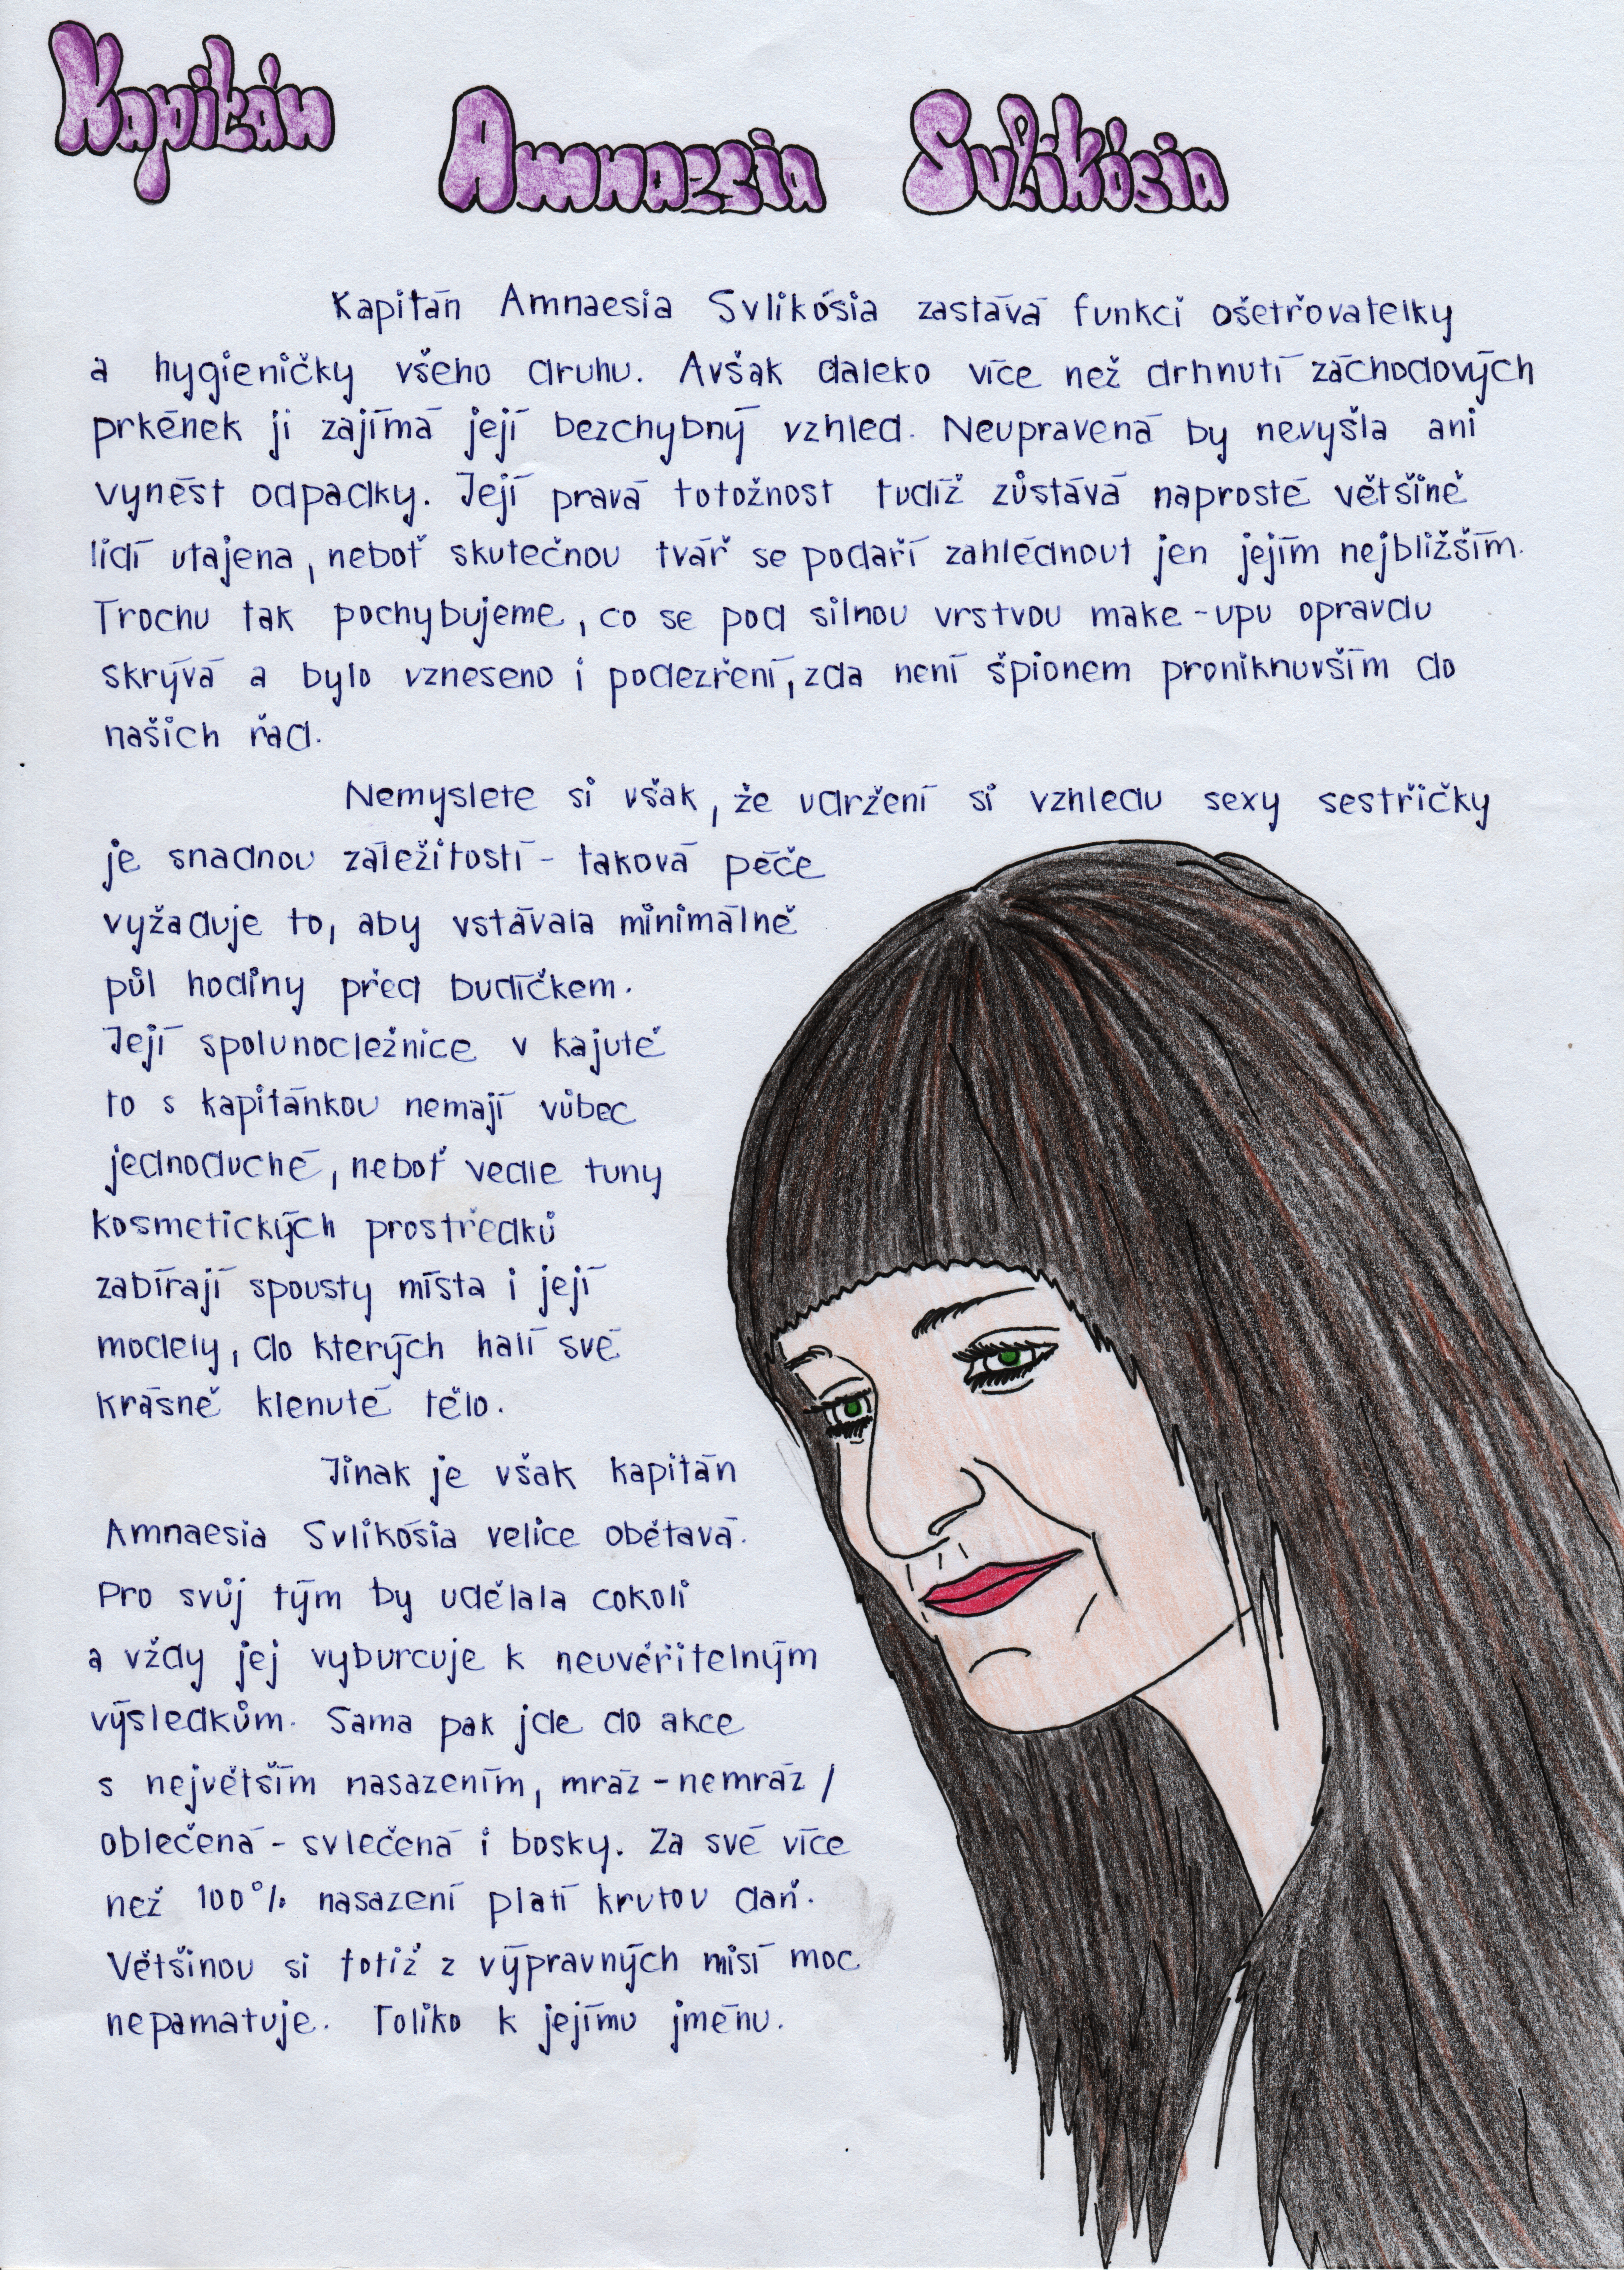 Kapitán Amnaesia Svlikósia
Kapitán Amnaesia Svlikósia zastává funkci ošetřovatelky
a hygieničky všeho druhu. Avšak daleko více než drhnutí záchodových
prkének ji zajímá její bezchybný vzhled. Neupravená by nevyšla ani
vynést odpadky. Její pravá totožnost tudíž zůstává naprosté většině
lidí utajena, neboť skutečnou tvář se podaří zahlédnout jen jejím nejbližším.
Trochu tak pochybujeme, co se pod silnou vrstvou make-upu opravdu
skrývá a bylo vzneseno i podezření, zda není špionem proniknuvším do
našich řad.
Nemyslete si však, že udržení si vzhledu sexy sestřičky
je snadnou záležitostí - taková péče
vyžaduje to, aby vstávala minimálně
půl hodiny před budíčkem.
Její spolunocležnice v kajutě
to s kapitánkou nemají vůbec
jednoduché, neboť vedle tuny
kosmetických prostředků
zabírají spousty místa i její
modely, do kterých halí své
krásně klenuté tělo.
Jinak je však kapitán
Amnaesia Svlikósia velice obětavá.
Pro svůj tým by udělala cokoli
a vždy jej vyburcuje k neuvěřitelným
výsledkům. Sama pak jde do akce
s největším nasazením, mráz-nemráz/
oblečená-svlečená i bosky. Za své více
než 100% nasazení platí krutou daň.
Většinou si totiž z výpravných misí moc
nepamatuje. Toliko k jejímu jménu.